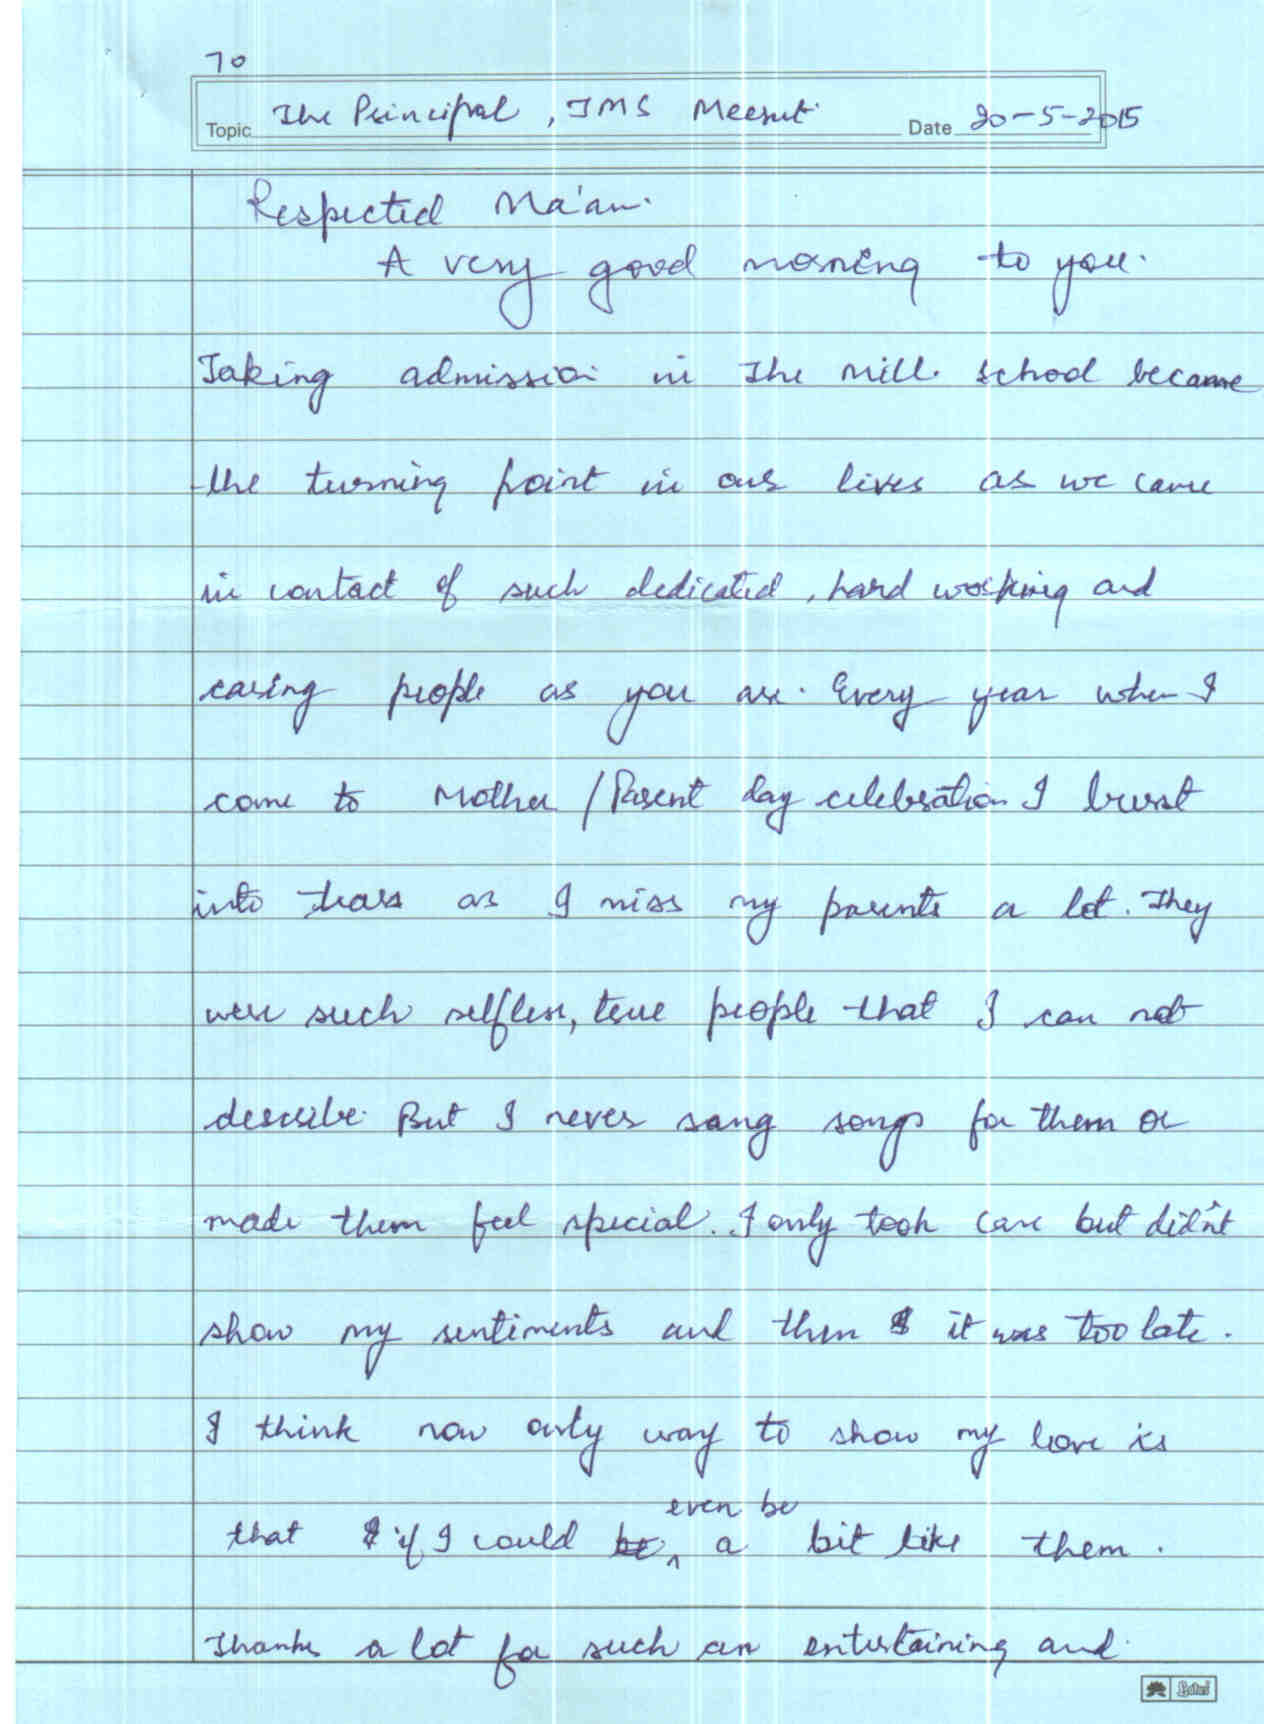 To
Topic The Principal, TMS Meerut. Date 20-5-2015
Respected Ma'am.
A very good morning to you.
Taking admission in The Mill. School became
the turning point in our lives as we came
in contact of such dedicated, hard working and
caring people as you are. Every year when I
come to Mother / Parent day celebration I burst
into tears as I miss my parents a lot. They
were such selfless, true people that I can not
describe. But I never sang songs for them or
made them feel special. I only took care but didn't
show my sentiments and then it was too late.
I think now only way to show my love is
even be
that if I could a bit like them.
Thanks a lot for such an entertaining and
Lotus